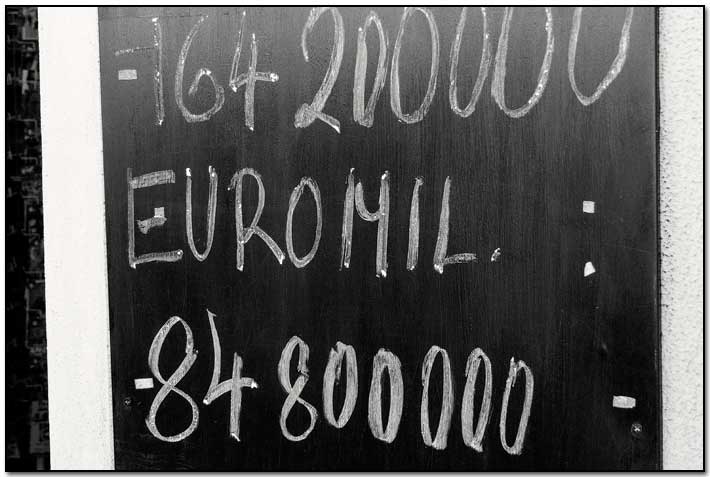 164 200000
EUROMIL.
84 800000